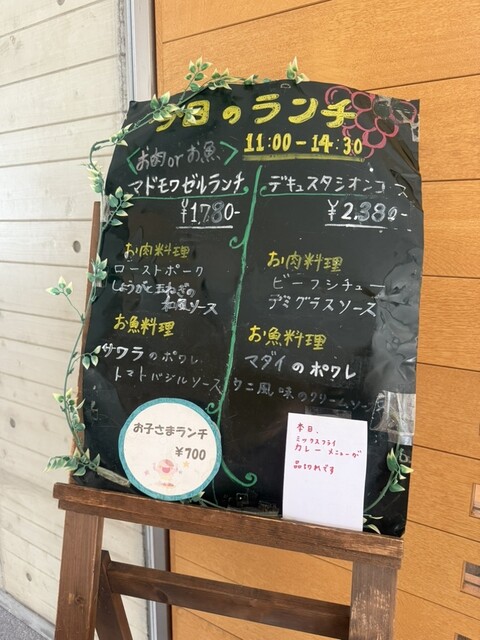 今日のランチ
11:00-14:30
<お肉orお魚>
マドモワゼルランチ
¥1780-
お肉料理
ローストポーク
しょうがと玉ねぎの
和風ソース
お魚料理
サワラのポワレ
トマトバジルソース
デギュスタシオンコース
¥2,380-
お肉料理
ビーフシチュー
デミグラスソース
お魚料理
マダイのポワレ
ウニ風味のクリームソース
お子さまランチ
¥700
本日、
ミックスフライ
カレーメニューが
品切れです